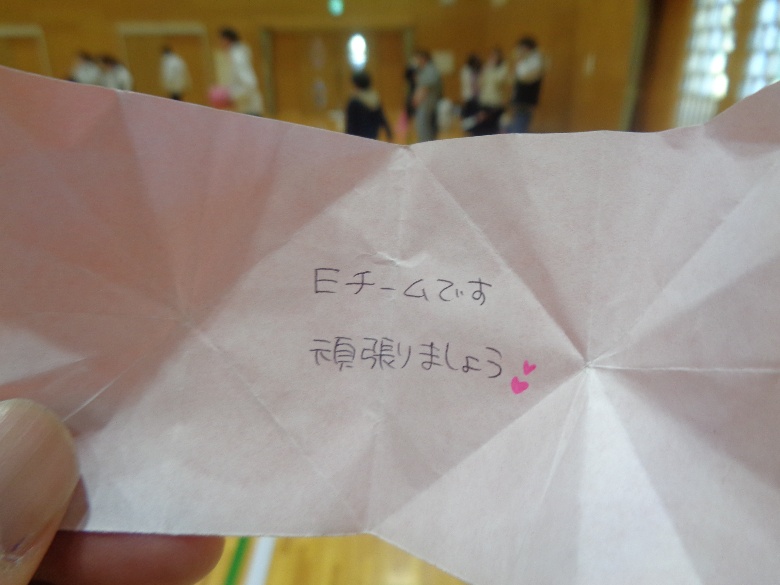 Eチームです
頑張りましょう